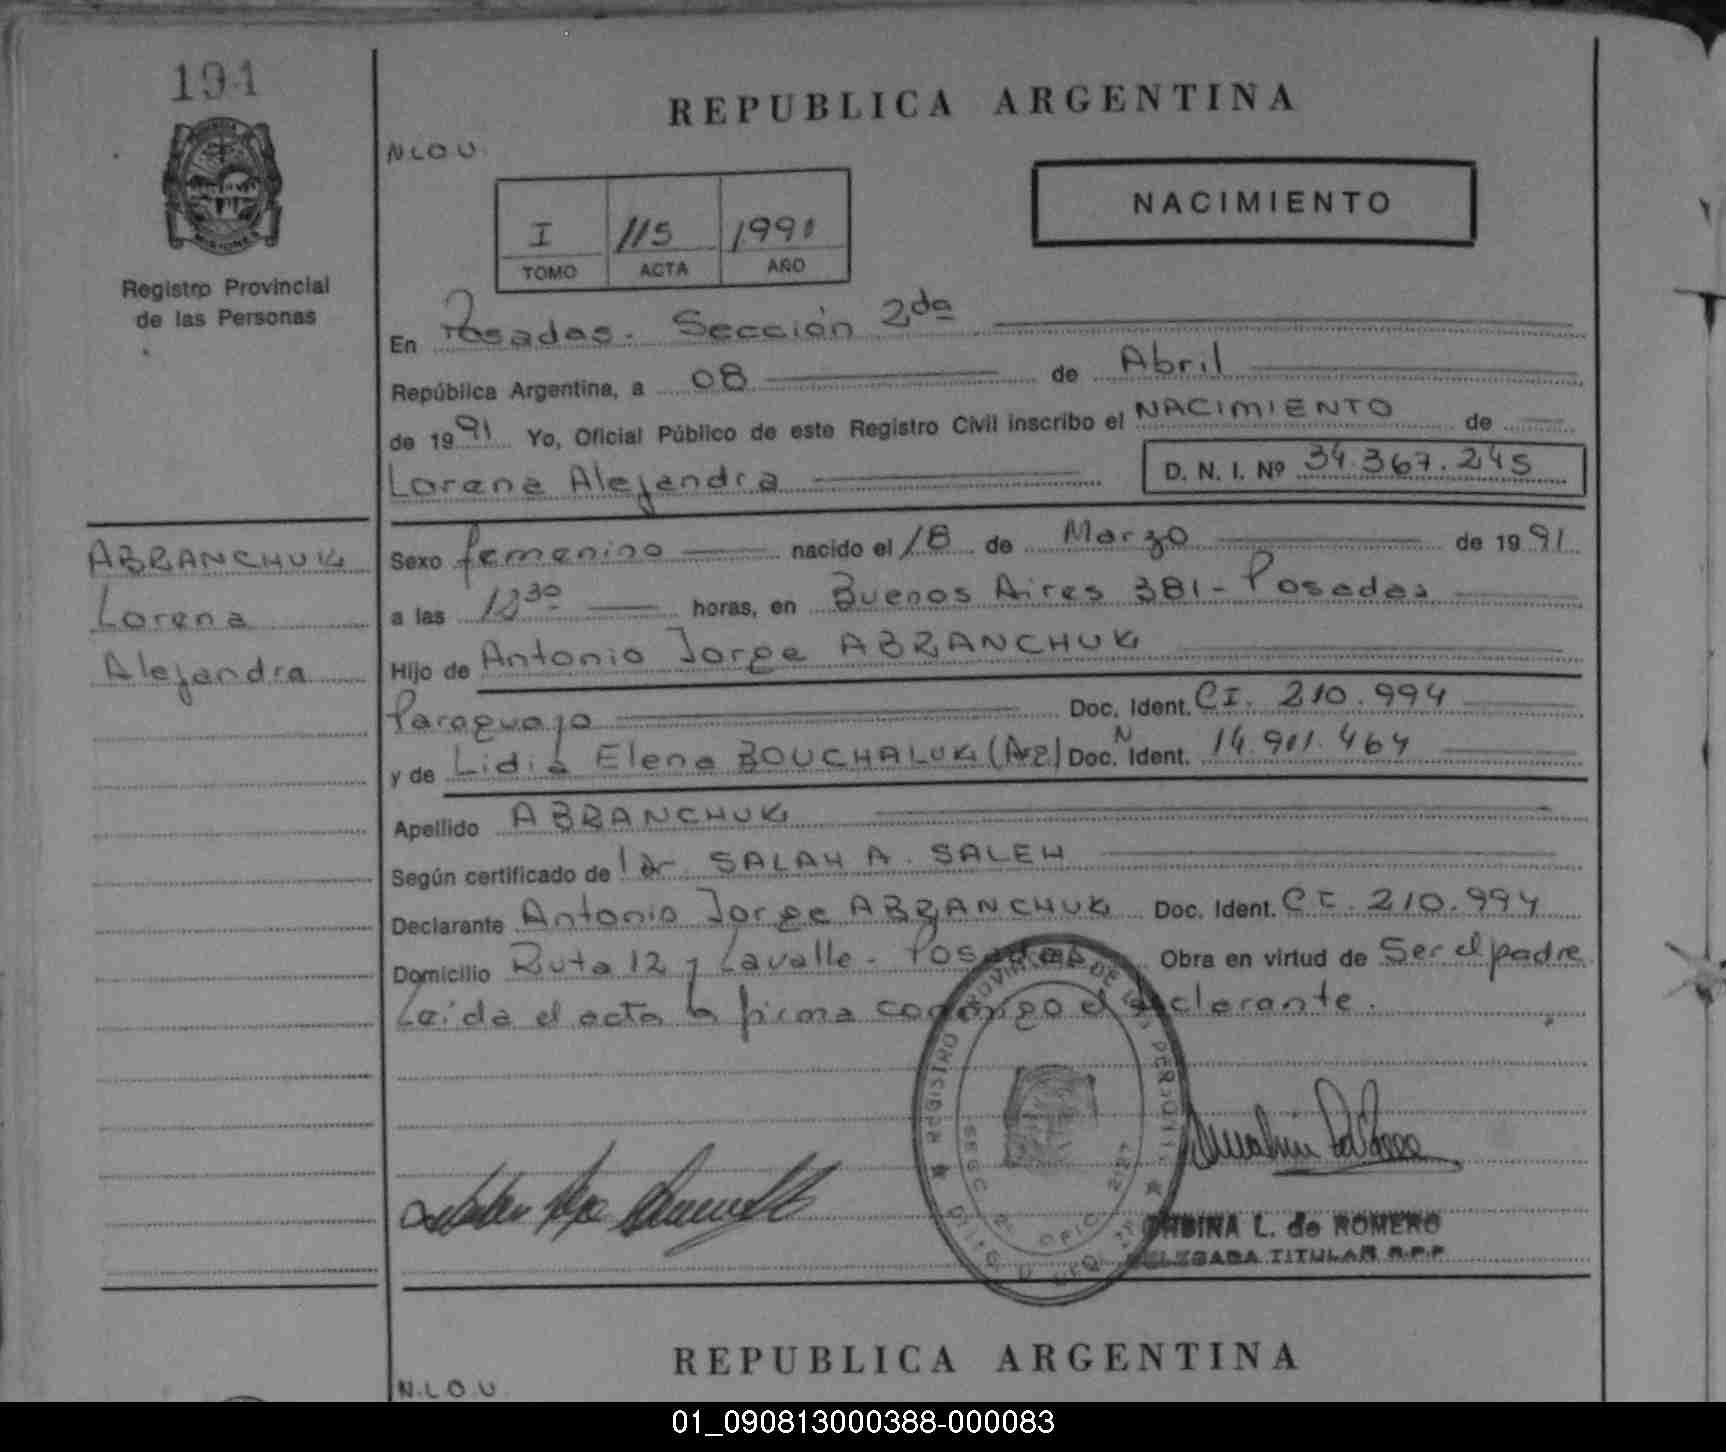 191
REPUBLICA ARGENTINA
N.L.O.U.
NACIMIENTO
I 115 1991
TOMO ACTA AÑO
Registro Provincial
de las Personas
En Posadas. Sección 2da
República Argentina, a 08 de Abril
de 1991 Yo, Oficial Público de este Registro Civil inscribo el NACIMIENTO de
Lorena Alejandra D. N. I. Nº 34.367.245
ABRANCHUK
Lorena
Alejandra
Sexo femenino nacido el 18 de Marzo de 1991
a las horas, en Buenos Aires 381 - Posadas
Hijo de Antonio Jorge ABRANCHUK
Paraguayo Doc. Ident. CI. 210.994
y de Lidia Elena BOUCHALUK (Arg) Doc. N Ident. 14.901.464
Apellido ABRANCHUK
Según certificado de Dr. SALAH A. SALEH
Declarante Antonio Jorge ABRANCHUK Doc. Ident. CI. 210.994
Domicilio Ruta 12 y Lavalle - Posadas Obra en virtud de Ser el padre
Leída el acta la firma conmigo el declarante.
REGISTRO PROVINCIAL DE LAS PERSONAS
SECC. 2ª OFIC.
L. de ROMERO
DELEGADA TITULAR R.P.P.
REPUBLICA ARGENTINA
N.L.O.U.
01_090813000388-000083